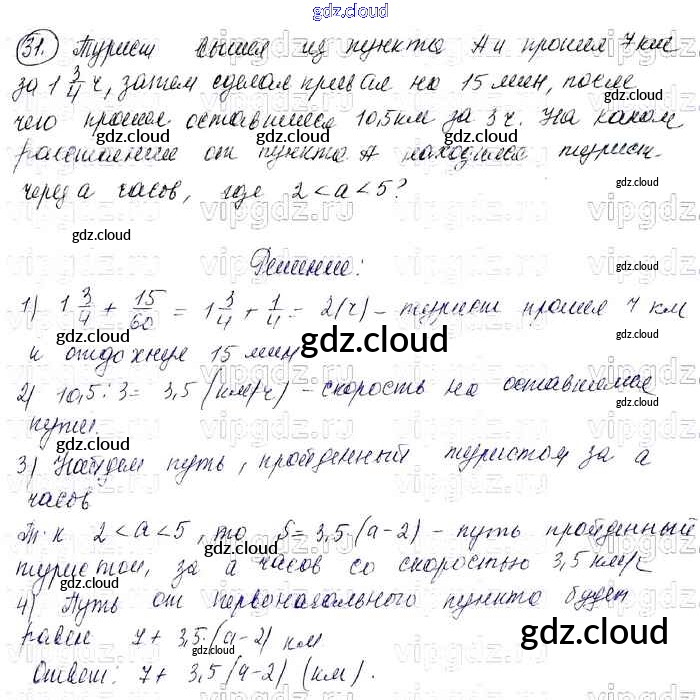 gdz.cloud
31. Турист вышел из пункта А и прошел 7 км
за 1 3/4 ч, затем сделал привал на 15 мин, после
чего прошел оставшиеся 10,5 км за 3 ч. На каком
gdz.cloud
gdz.cloud
расстоянии от пункта А находился турист
gdz.cloud
через а часов, где 2 < а < 5?
vipgdz.ru
gdz.cloud
Решение:
1) 1 3/4 + 15/60 = 1 3/4 + 1/4 = 2(ч) – турист прошел 7 км
и отдохнул 15 мин
gdz.cloud
gdz.cloud
2) 10,5 : 3 = 3,5 (км/ч) – скорость на оставшемся
gdz.cloud
пути.
gdz.cloud
3) Найдем путь, пройденный туристом за а
gdz.cloud
часов
Т.к 2 < а < 5, то S = 3,5·(а-2) – путь пройденный
gdz.cloud
туристом, за а часов со скоростью 3,5 км/ч
4) Путь от первоначального пункта будет
gdz.cloud
gdz.cloud
равен 7 + 3,5·(а-2) км
gdz.cloud
Ответ: 7 + 3,5(а-2) (км).
gdz.cloud